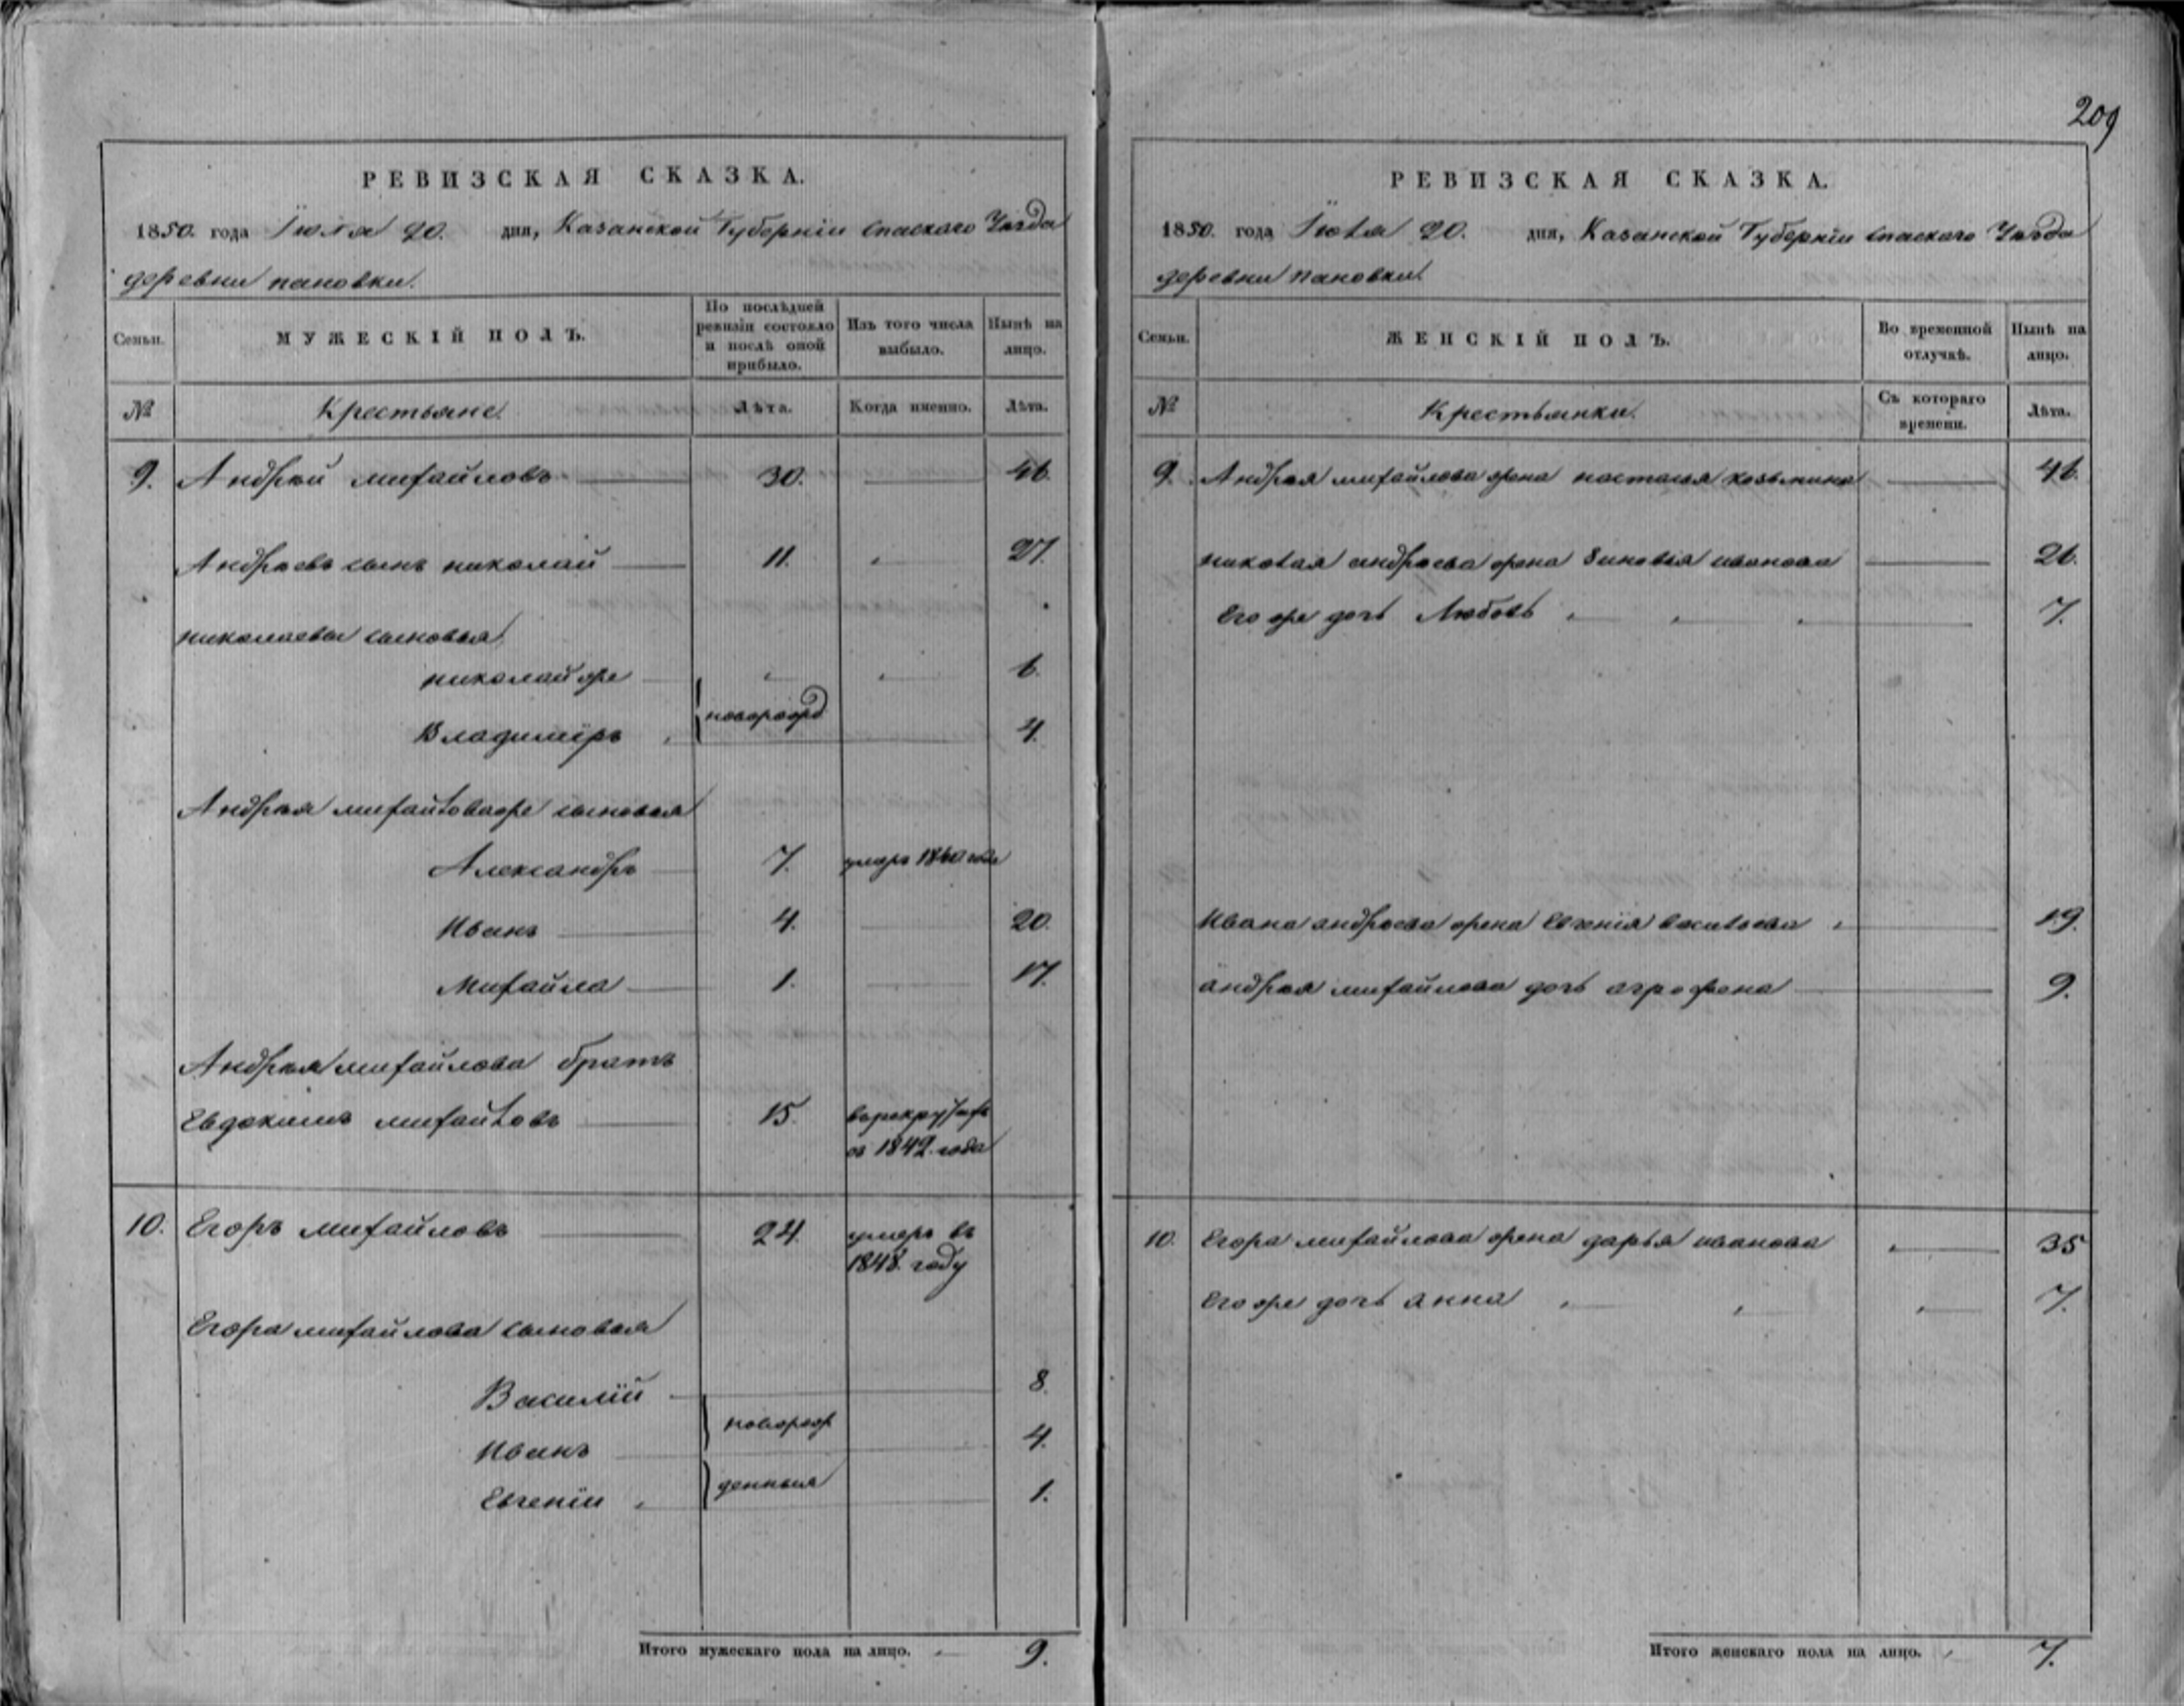 209
РЕВИЗСКАЯ СКАЗКА.
1850. года Іюля 20. дня, Казанской Губерніи спаскаго Уѣзда
деревни пановки.
Семьи.
МУЖЕСКІЙ ПОЛЪ.
По послѣдней ревизіи состояло и послѣ оной прибыло.
Изъ того числа выбыло.
Нынѣ на лицо.
№
Крестьяне
Лѣта.
Когда именно.
Лѣта.
9. Андрей михайловъ 30. 46.
Андреевъ сынъ николай 11. 27.
николаевы сыновья
николай же 6.
новорожд
Владиміръ 4.
Андрея михайлова же сыновья
Александръ 7. умеръ года
Иванъ 4. 20.
Михайла 1. 17.
Андрея михайлова братъ
Евдокимъ михайловъ 15. в рекрутахъ
съ 1842. года
10. Егоръ михайловъ 24. умеръ въ
1848. году
Егора михайлова сыновья
Василій 8.
новорож
Иванъ 4.
денныя
Евгеніи 1.
Итого мужескаго пола на лицо. 9.
РЕВИЗСКАЯ СКАЗКА.
1850. года Іюля 20. дня, Казанской Губерніи спаскаго Уѣзда
деревни пановки.
Семьи.
ЖЕНСКІЙ ПОЛЪ.
Во временной отлучкѣ.
Нынѣ на лицо.
№
Крестьянки.
Съ котораго времени.
Лѣта.
9. Андрея михайлова жена настасья козьмина 46.
николая андреева жена Зиновья иванова 26.
Его же дочь Любовь 7.
Ивана андреева жена Евгенія васильева 19.
андрея михайлова дочь агрофена 9.
10. Егора михайлова жена дарья иванова 35
Его же дочь анна 7.
Итого женскаго пола на лицо. 7.